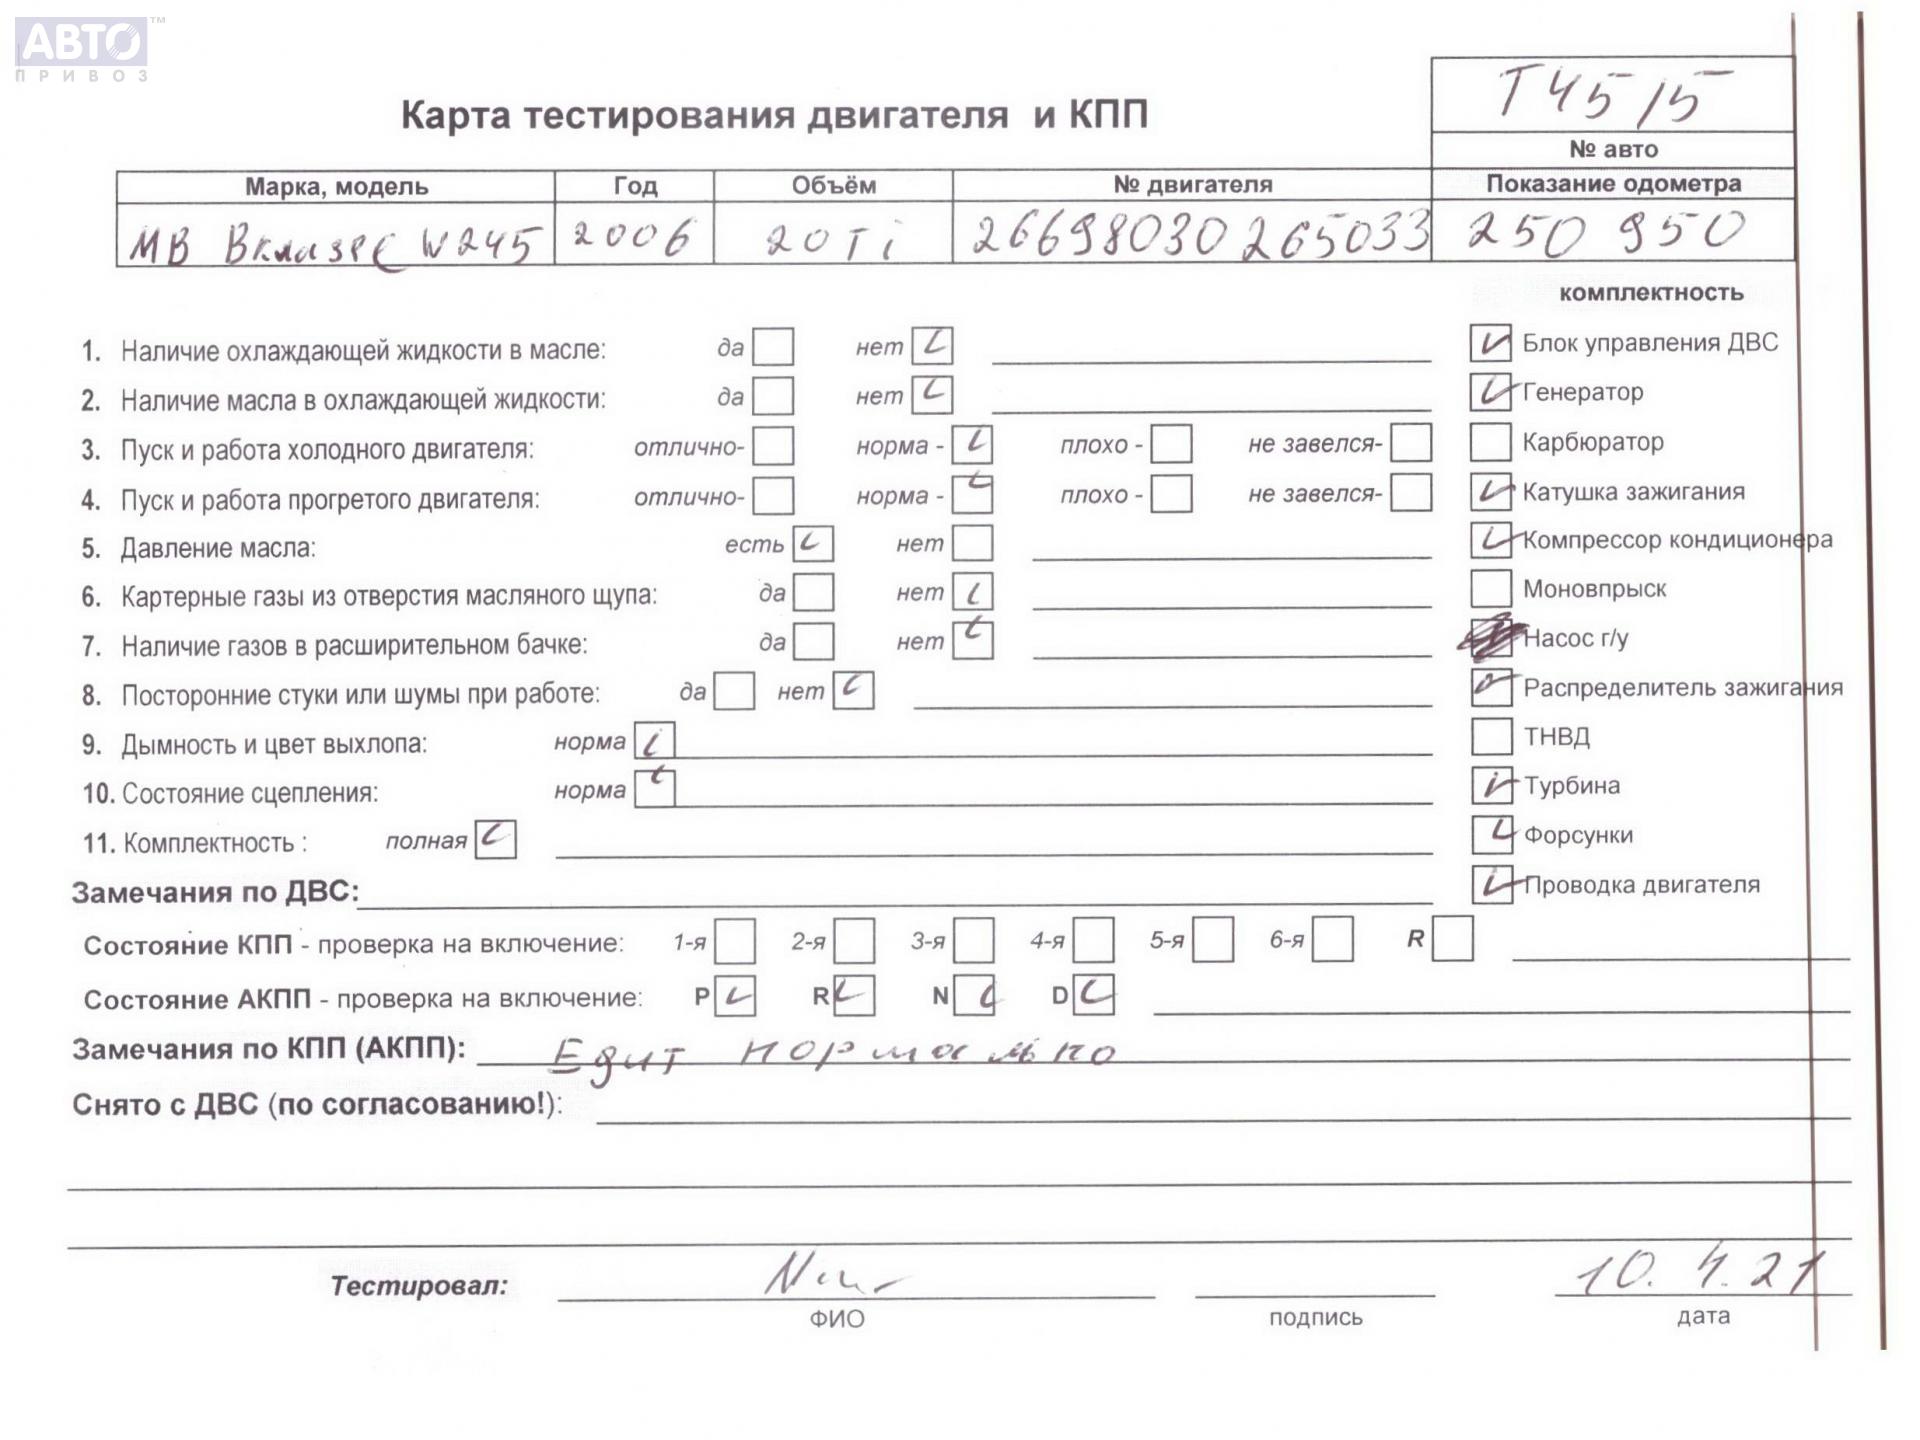 АВТО™
ПРИВОЗ
Т45 15
Карта тестирования двигателя и КПП
№ авто
Марка, модель Год Объём № двигателя Показание одометра
МВ Вклазсе W245 2006 20Ti 26698030265033 250 950
комплектность
1. Наличие охлаждающей жидкости в масле: да нет Блок управления ДВС
2. Наличие масла в охлаждающей жидкости: да нет Генератор
3. Пуск и работа холодного двигателя: отлично- норма - плохо - не завелся- Карбюратор
4. Пуск и работа прогретого двигателя: отлично- норма - плохо - не завелся- Катушка зажигания
5. Давление масла: есть нет Компрессор кондиционера
6. Картерные газы из отверстия масляного щупа: да нет Моновпрыск
7. Наличие газов в расширительном бачке: да нет Насос г/у
8. Посторонние стуки или шумы при работе: да нет Распределитель зажигания
9. Дымность и цвет выхлопа: норма ТНВД
10. Состояние сцепления: норма Турбина
11. Комплектность : полная Форсунки
Замечания по ДВС: Проводка двигателя
Состояние КПП - проверка на включение: 1-я 2-я 3-я 4-я 5-я 6-я R
Состояние АКПП - проверка на включение: P R N D
Замечания по КПП (АКПП): Едит нормально
Снято с ДВС (по согласованию!):
Тестировал: 10.4.21
ФИО подпись дата